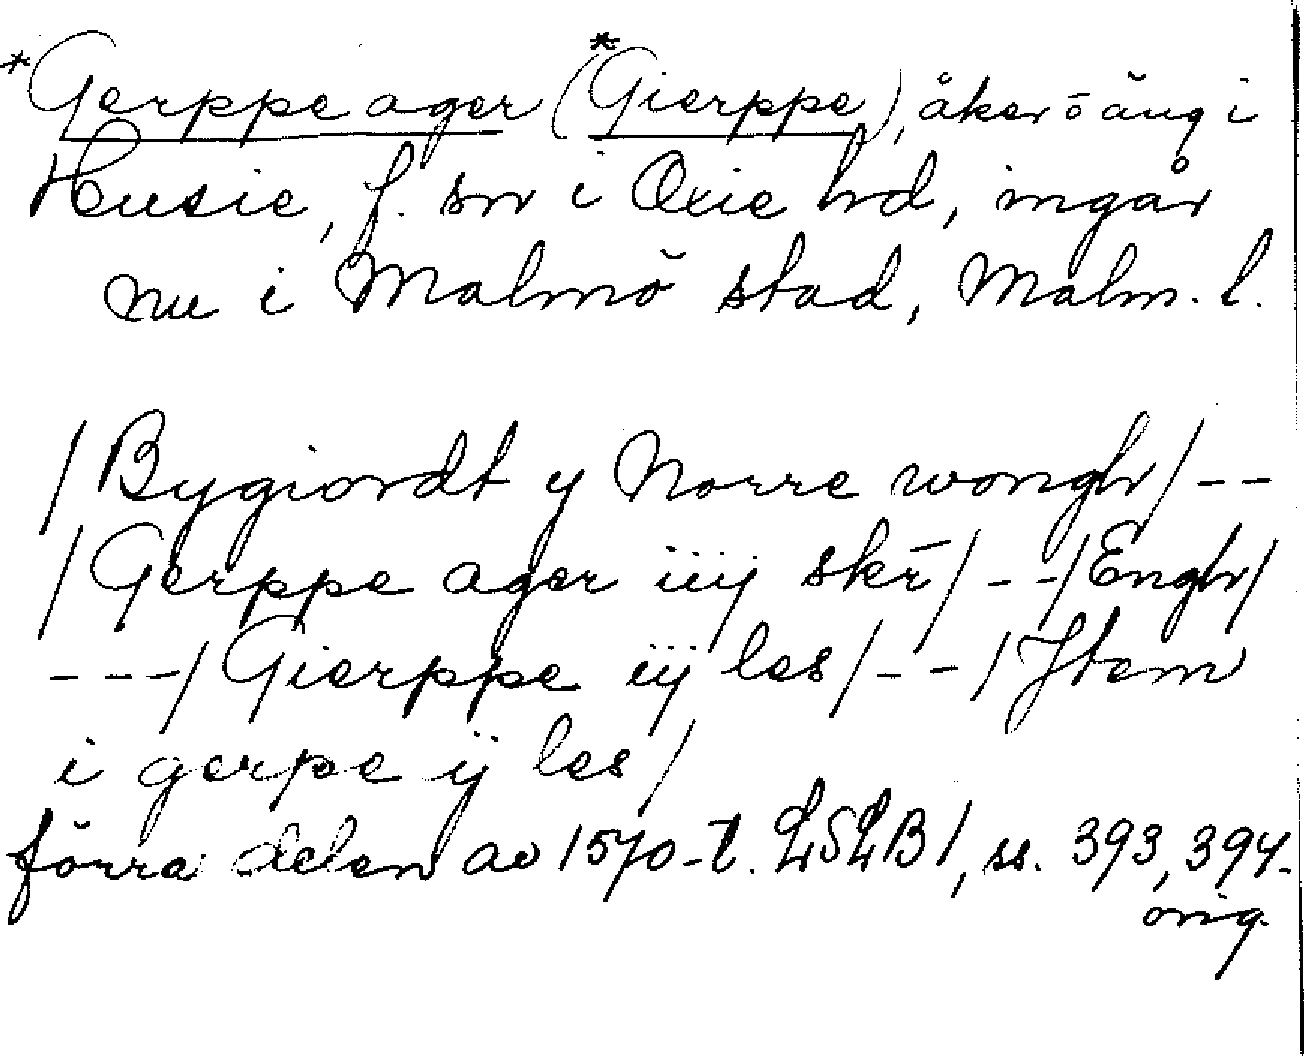 *Gerppe ager (*Gierppe), åker o äng i
Husie, f. sn i Oxie hd, ingår
nu i Malmö stad, Malm. l.
/Bygiordt y Norre wongh/--
/Gerppe ager iiij skr̄/--/Engh/
---/Gierppe iij les/--/Jtem
i gerpe ij les/
förra delen av 1570-t. LSLB 1, ss. 393, 394.
orig.